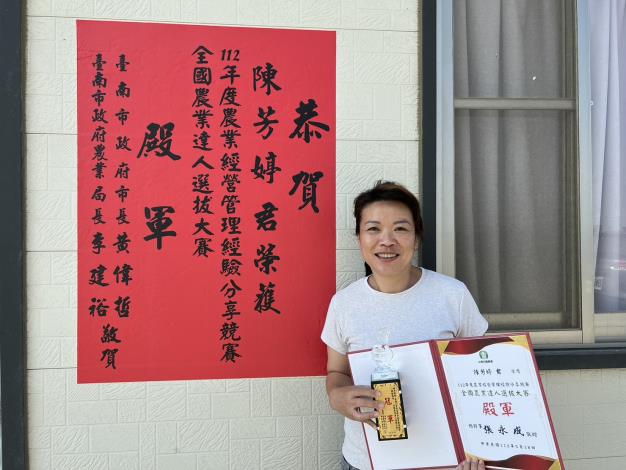 恭賀
陳芳婷君榮獲
112年度農業經營管理經驗分享競賽
全國農業達人選拔大賽
殿軍
臺南市政府市長黃偉哲
臺南市政府農業局長李建裕 敬賀
陳芳婷 君
112年度農業經營管理經驗分享競賽
全國農業達人選拔大賽
殿軍
張永成